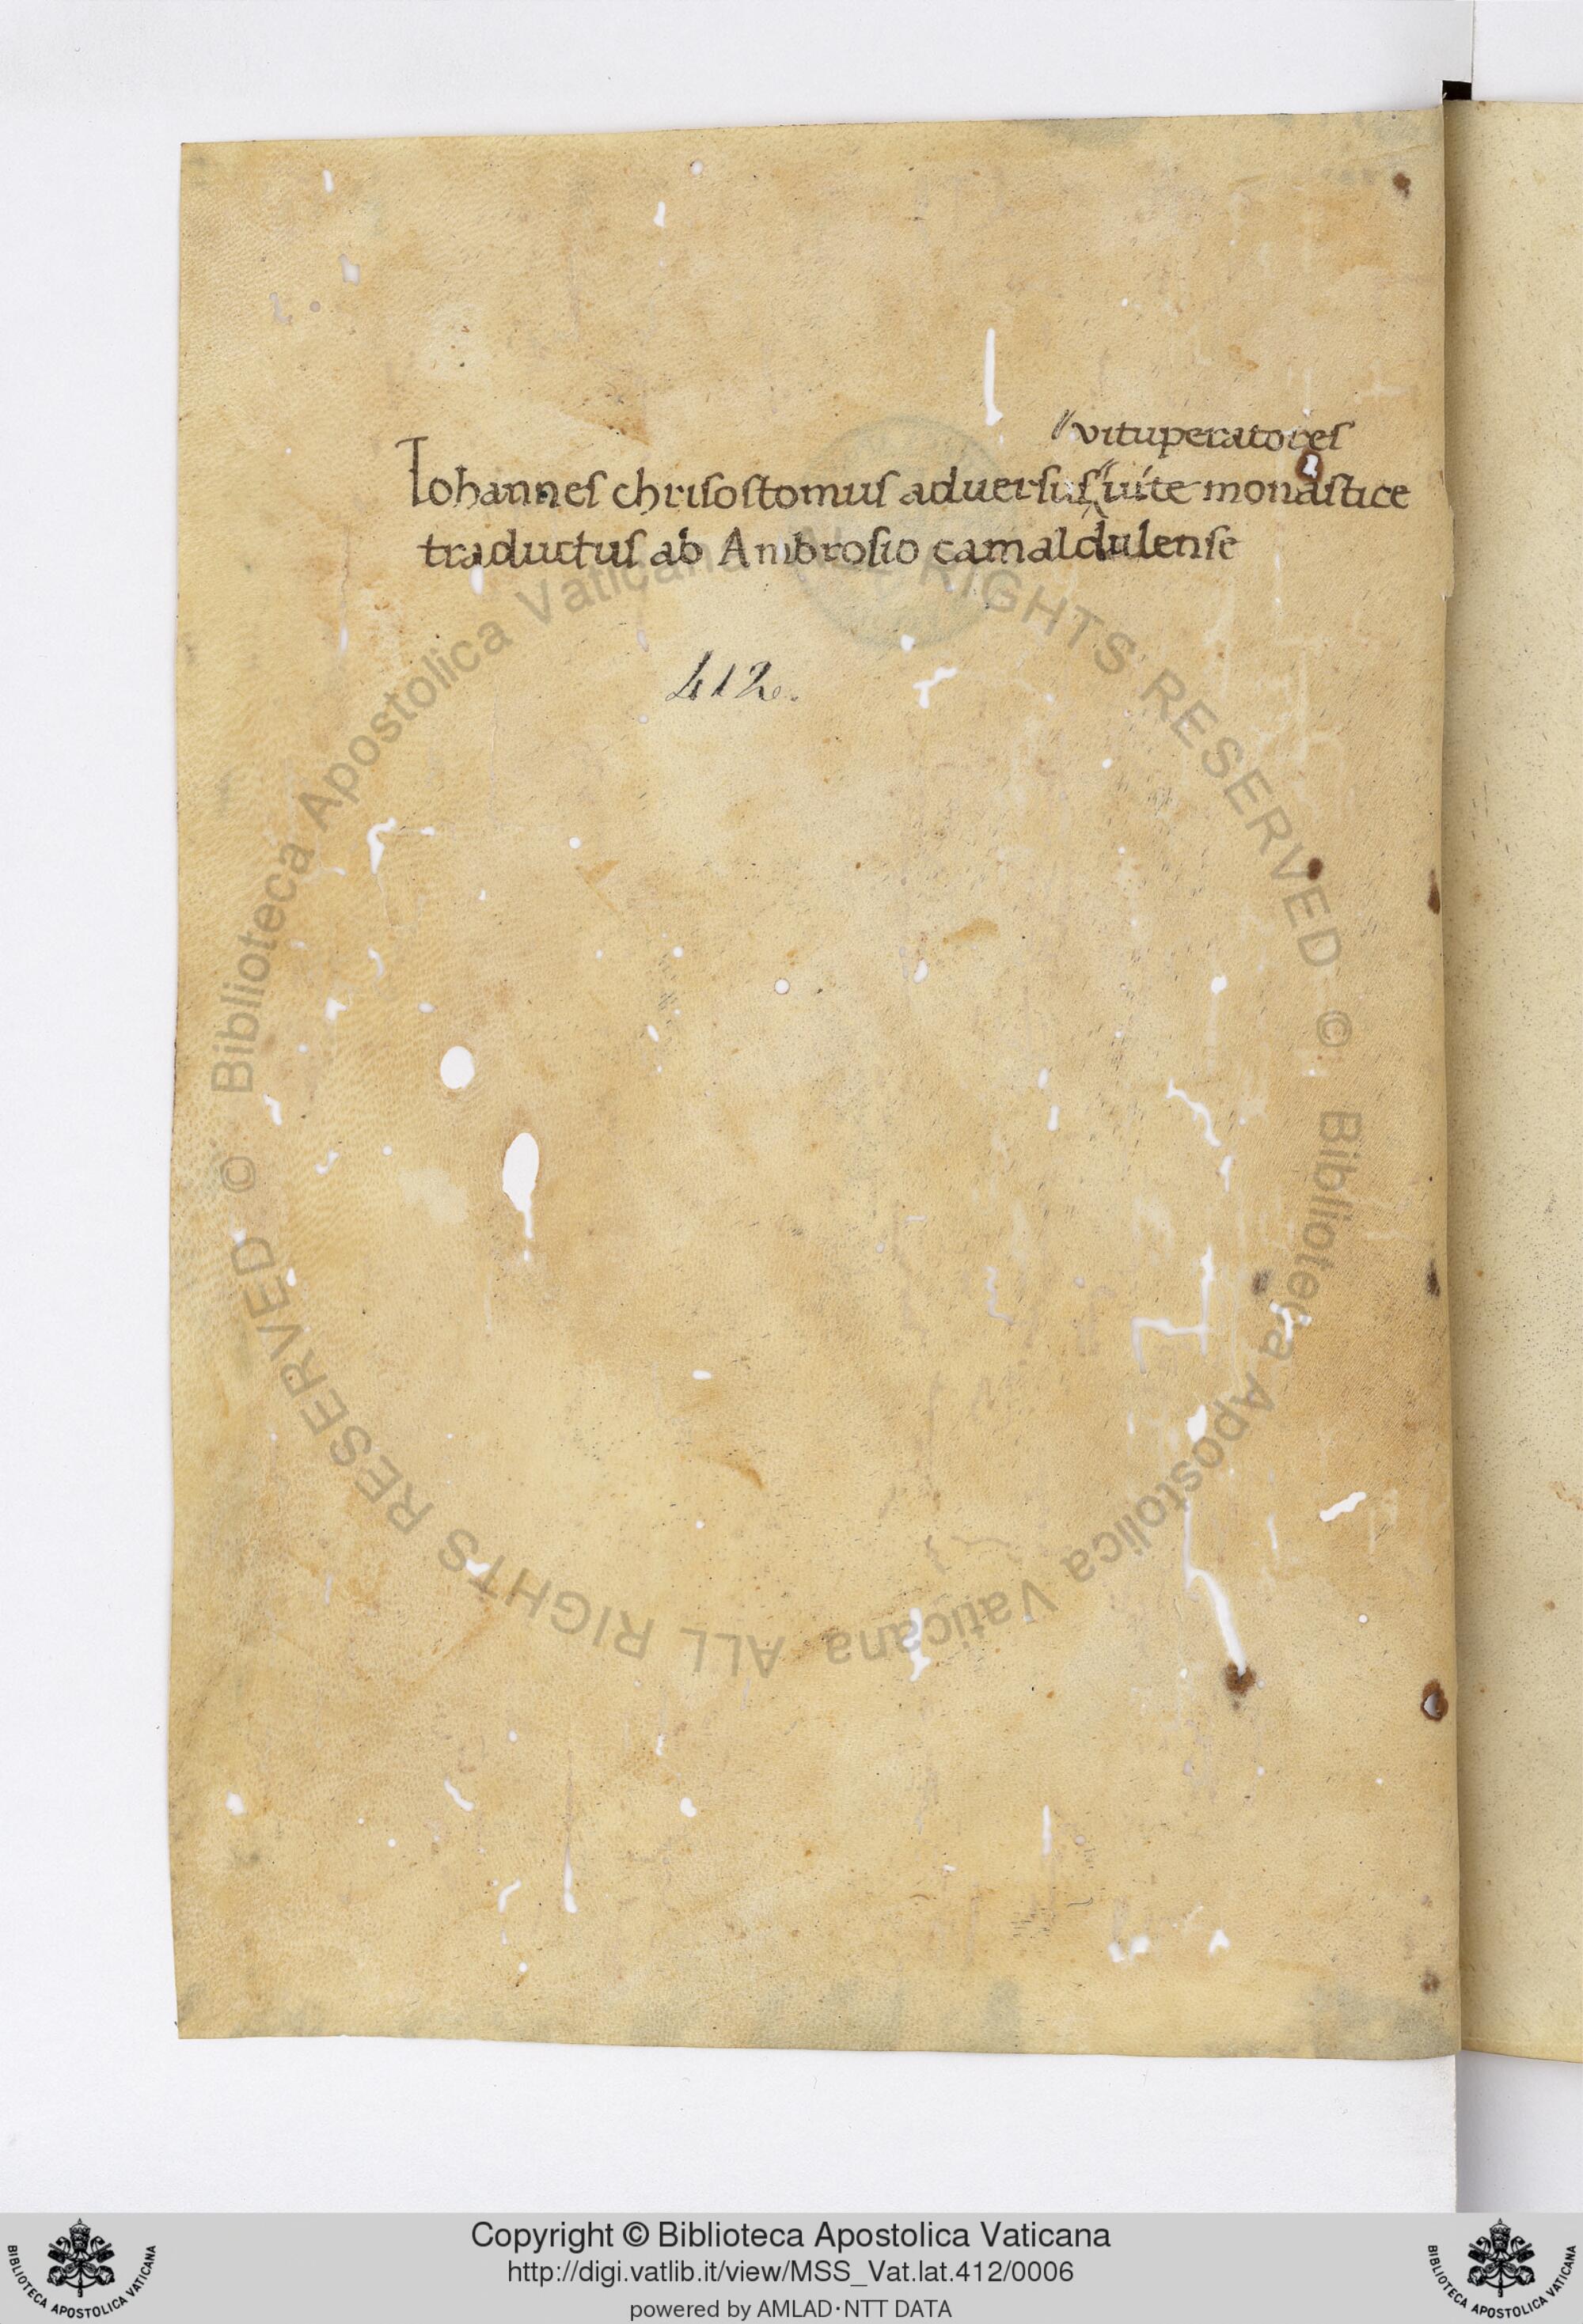 vituperatores
Iohannes chrisostomus aduersus uite monastice
traductus ab Ambrosio camaldulense
412.
© Biblioteca Apostolica Vaticana ALL RIGHTS RESERVED © Biblioteca Apostolica Vaticana ALL RIGHTS RESERVED
Copyright © Biblioteca Apostolica Vaticana
http://digi.vatlib.it/view/MSS_Vat.lat.412/0006
powered by AMLAD·NTT DATA
BIBLIOTECA APOSTOLICA VATICANA
BIBLIOTECA APOSTOLICA VATICANA